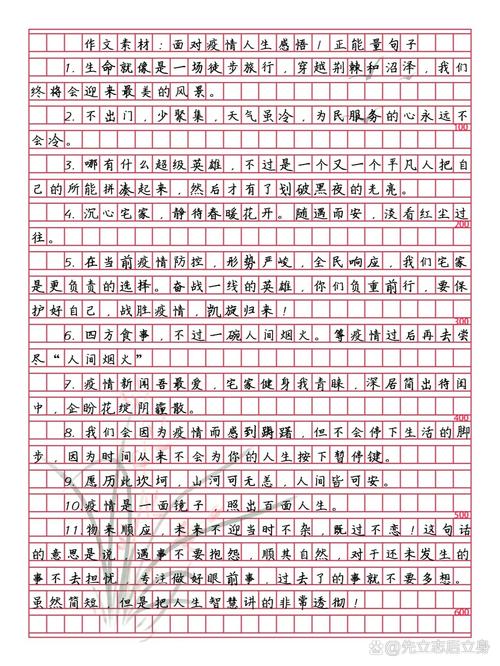 作文素材：面对疫情人生感悟|正能量句子
1.生命就像是一场徒步旅行，穿越荆棘和沼泽，我们
终将会迎来最美的风景。
2.不出门，少聚集，天气虽冷，为民服务的心永远不
100
会冷。
3.哪有什么超级英雄，不过是一个又一个平凡人把自
己的所能拼凑起来，然后才有了划破黑夜的光亮。
4.沉心宅家，静待春暖花开。随遇而安，淡看红尘过
200
往。
5.在当前疫情防控，形势严峻，全民响应，我们宅家
是更负责的选择。奋战一线的英雄，你们负重前行，要保
护好自己，战胜疫情，凯旋归来！
300
6.四方食事，不过一碗人间烟火。等疫情过后再去尝
尽“人间烟火”
7.疫情新闲吾最爱，宅家健身我青睐，深居简出待闲
中，企盼花绽阴霾散。
400
8.我们会因为疫情而感到踌躇，但不会停下生活的脚
步，因为时间从来不会为你的人生按下暂停键。
9.愿历此坎坷，山河可无恙，人间皆可安。
10.疫情是一面镜子，照出百面人生。
500
11.物来顺应，未来不迎当时不杂，既过不恋！这句话
的意思是说，遇事不要抱怨，顺其自然，对于还未发生的
事不去担忧，专注做好眼前事，过去了的事就不要多想。
虽然简短，但是把人生智慧讲的非常透彻！
600
@先立志后立身